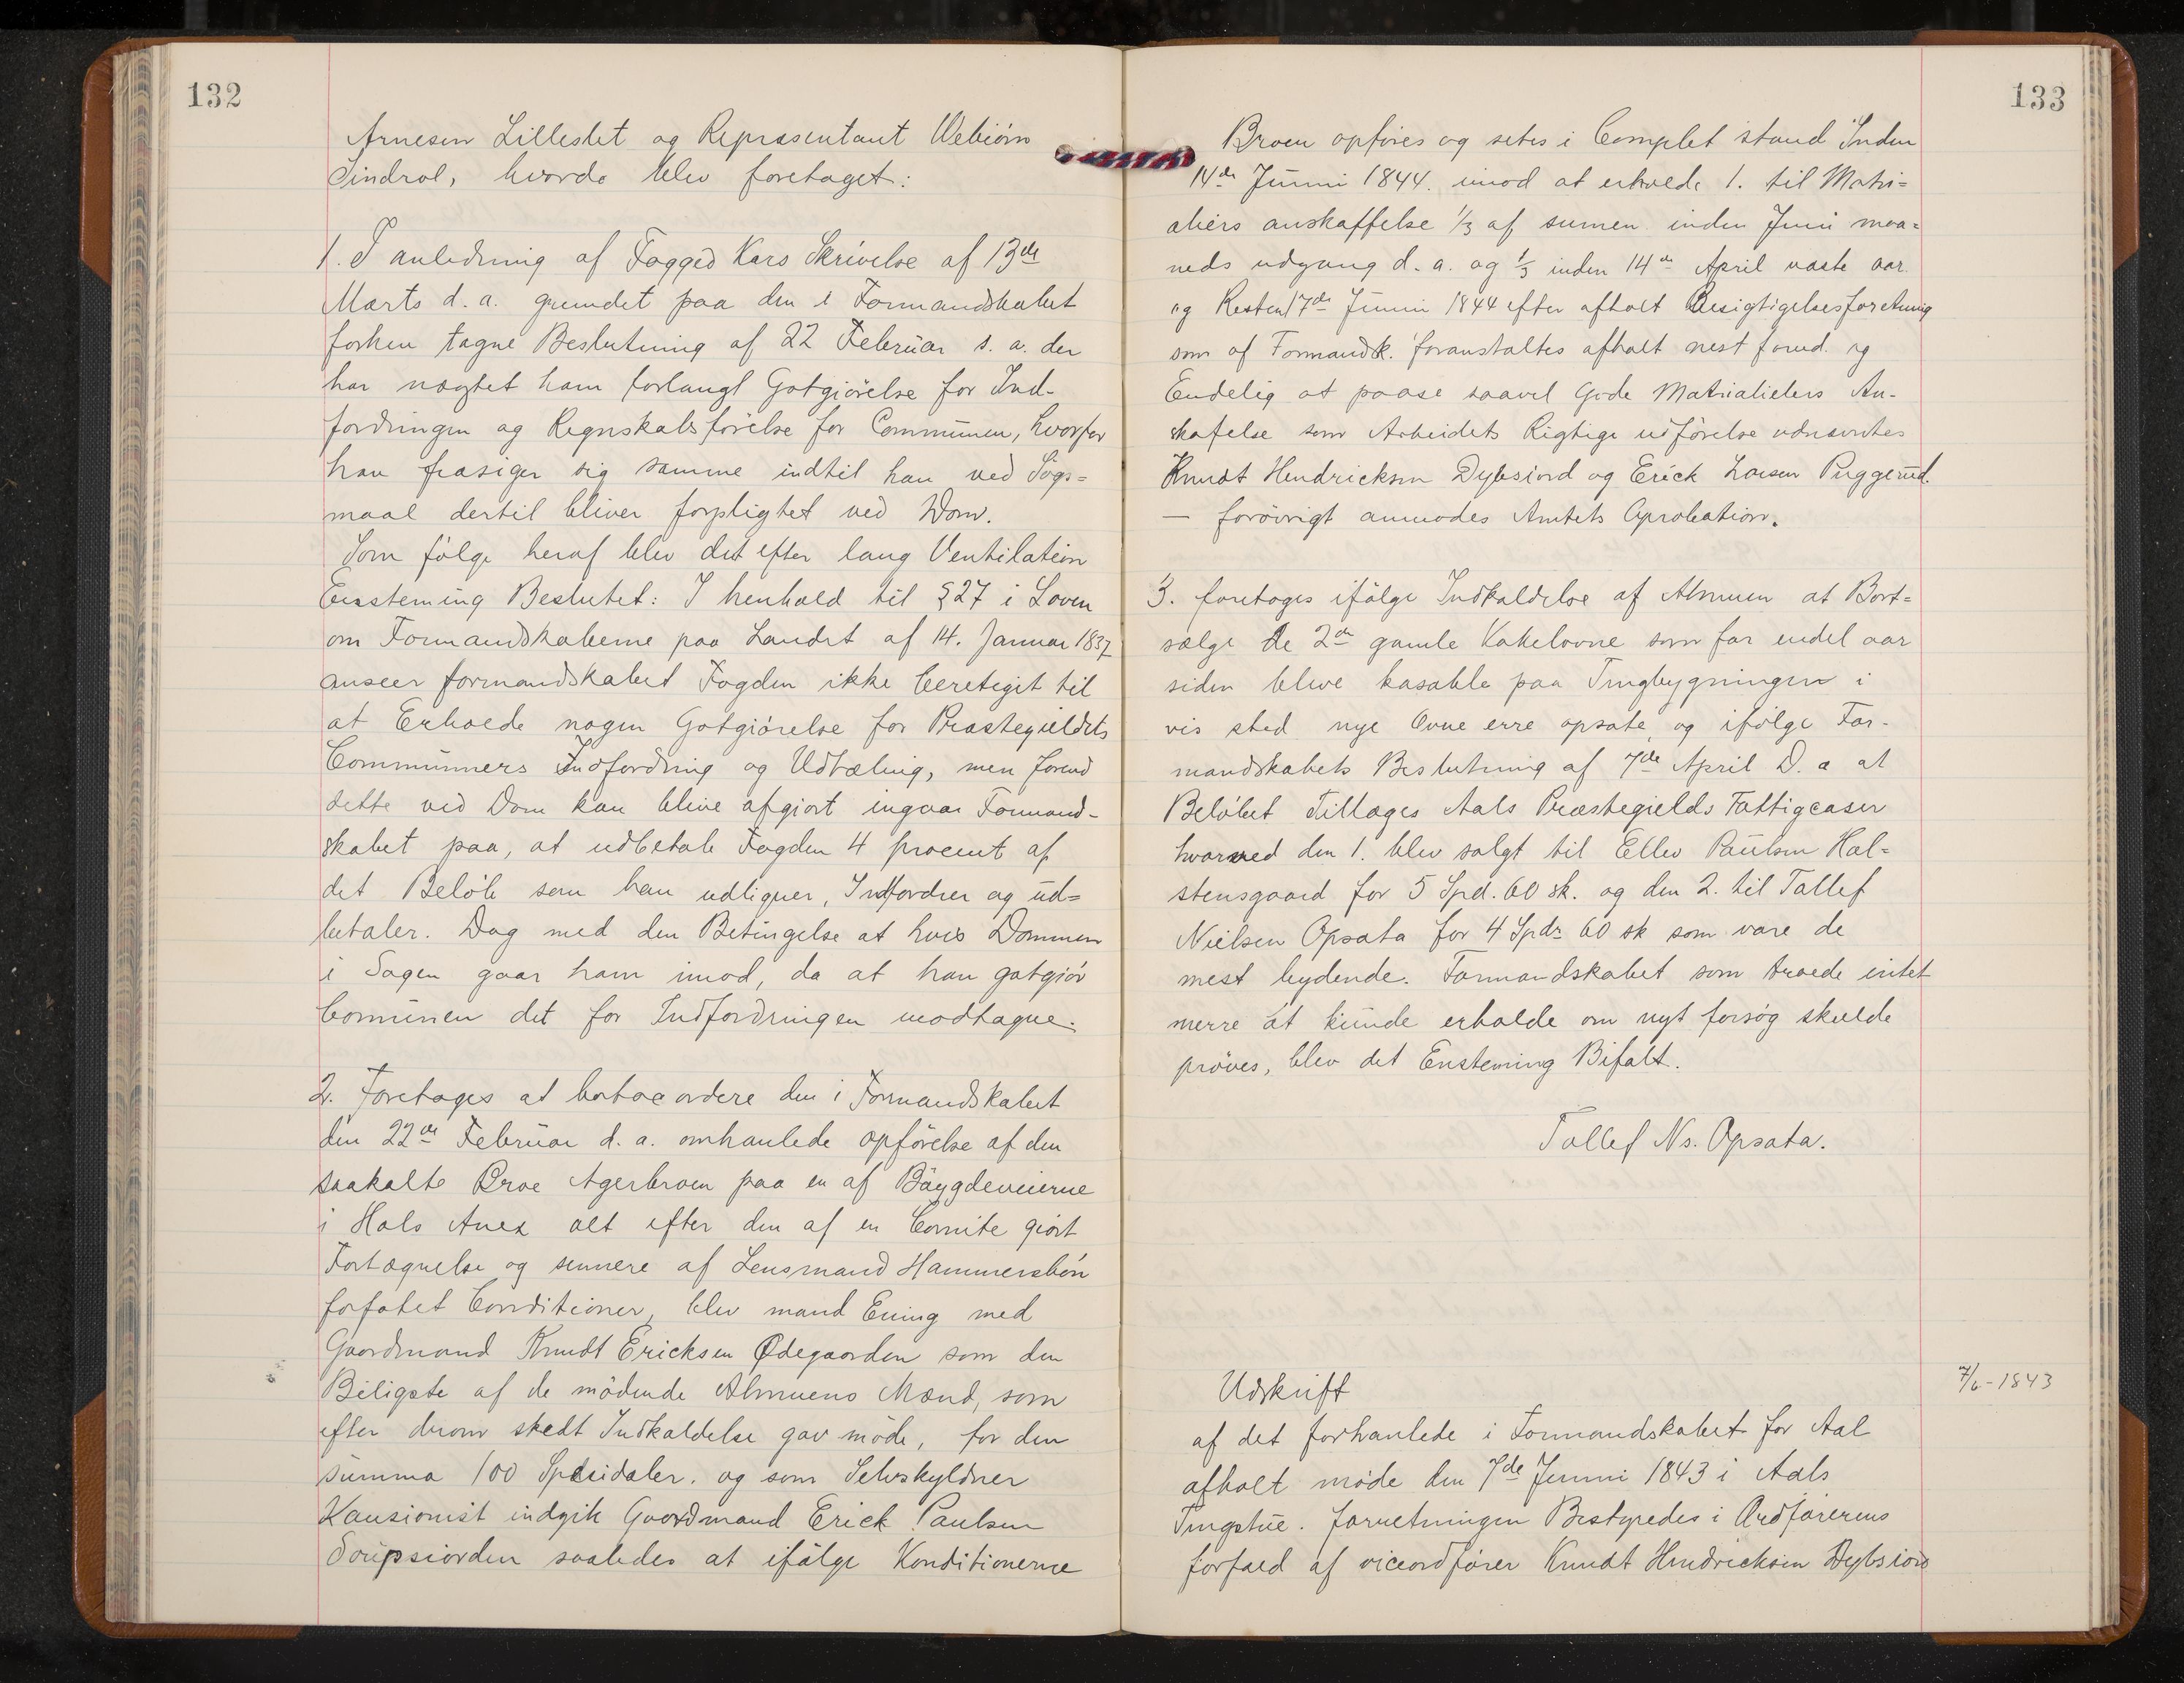 132
Arnesen Lilleslet og Repræsentant Vebiörn
Sindrol, hvorda blev foretaget:
1. I anledning af Fogged Kars Skrivelse af 13de
Marts d. a. grundet paa den i Formandskabet
forhen tagne Beslutning af 22 Februar s. a. der
har nægtet ham forlangt Gotgiörelse for Ind-
fordringen og Regnskabsförelse for Communen, hvorfor
han frasiger sig samme indtil han ved Sögs=
maal dertil bliver forpligtet ved Dom.
Som fölge heraf blev det efter lang Ventilation
Eensteming Beslutet: I henhold til §27 i Loven
om Formandskaberne paa Landet af 14. Januar 1837
anseer formandskabet Fogden ikke beretiget til
at Erholde nogen Gotgiörelse for Præstegieldets
Communners Indfordring og Udtæling, men forend
dette ved Dom kan blive afgjort ingaar Formand-
skabet paa, at udbetale Fogden 4 procent af
det Belöb som han udligner, Indfordrer og ud=
betaler. Dog med den Betingelse at hvis Dommen
i Sagen gaar ham imod, da at han gotgiör
Communen det for Indfordringen modtagne.
2. Foretoges at bortacordere den i Formandskabet
den 22de Februar d. a. omhanlede opförelse af den
saakalte Broe Agerbroen paa en af Böygdeveierne
i Hols Anex alt efter den af en Comite giört
Fortægnelse og sennere af Lensmand Hammersbön
forfatet Conditioner, blev mand Ening med
Gaardmand Knudt Ericksen Ødegaarden som den
Biligste af de mödende Almuens Mænd, som
efter derom skedt Indkaldelse gav möde, for den
summa 100 Spesidaler. og som Selvskyldner
Kausionist indgik Gaardmand Erick Paulsen
Soupsiorden saaledes at ifölge Konditionerne
133
Broen opföres og setes i Complet stand Inden
14de Junni 1844. imod at erholde 1. til Matri=
aliers anskaffelse 1/3 af sumen inden Juni maa=
neds udgang d. a. og 1/3 inden 14de April næste aar
og Resten 17de Junni 1844 efter afholt Besigtigelsesforetning
som af Formandsk. foranstaltes afholt nest forud. og
Endelig at paase saavel Gode Matrialielers An-
skafelse som Arbeidets Rigtige udförelse udnævntes
Knudt Hendricksen Dybsiord og Erick Larsen Puggerud.
— forövrigt anmodes Amtets Aprobation.
3. foretoges ifölge Indkaldelse af Almuen at Bort=
sælge de 2de gamle Kakelovne som for endel aar
siden bleve kasable paa Tingbygningen i
vis sted nye Ovne erre opsate, og ifölge For-
mandskabets Beslutning af 7de April D. a at
Belöbet Tillages Aals Præstegields Fattigcaser
hvorved den 1. blev solgt til Ellev Paulsen Hal=
stensgaard for 5 Spd. 60 sk. og den 2. til Tollef
Nielsen Opsata for 4 Spdr 60 sk som vare de
mest bydende. Formandskabet som troede intet
merre at kunde erholde om nyt forsög skulde
pröves, blev det Ensteming Bifalt.
Tollef Ns. Opsata.
Udskrift
7/6-1843
af det forhanlede i Formandskabet for Aal
afholt möde den 7de Junni 1843 i Aals
Tingstue. forretningen Bestyredes i Ordförerens
forfald af viceordförer Knudt Hendricksen Dybsiord